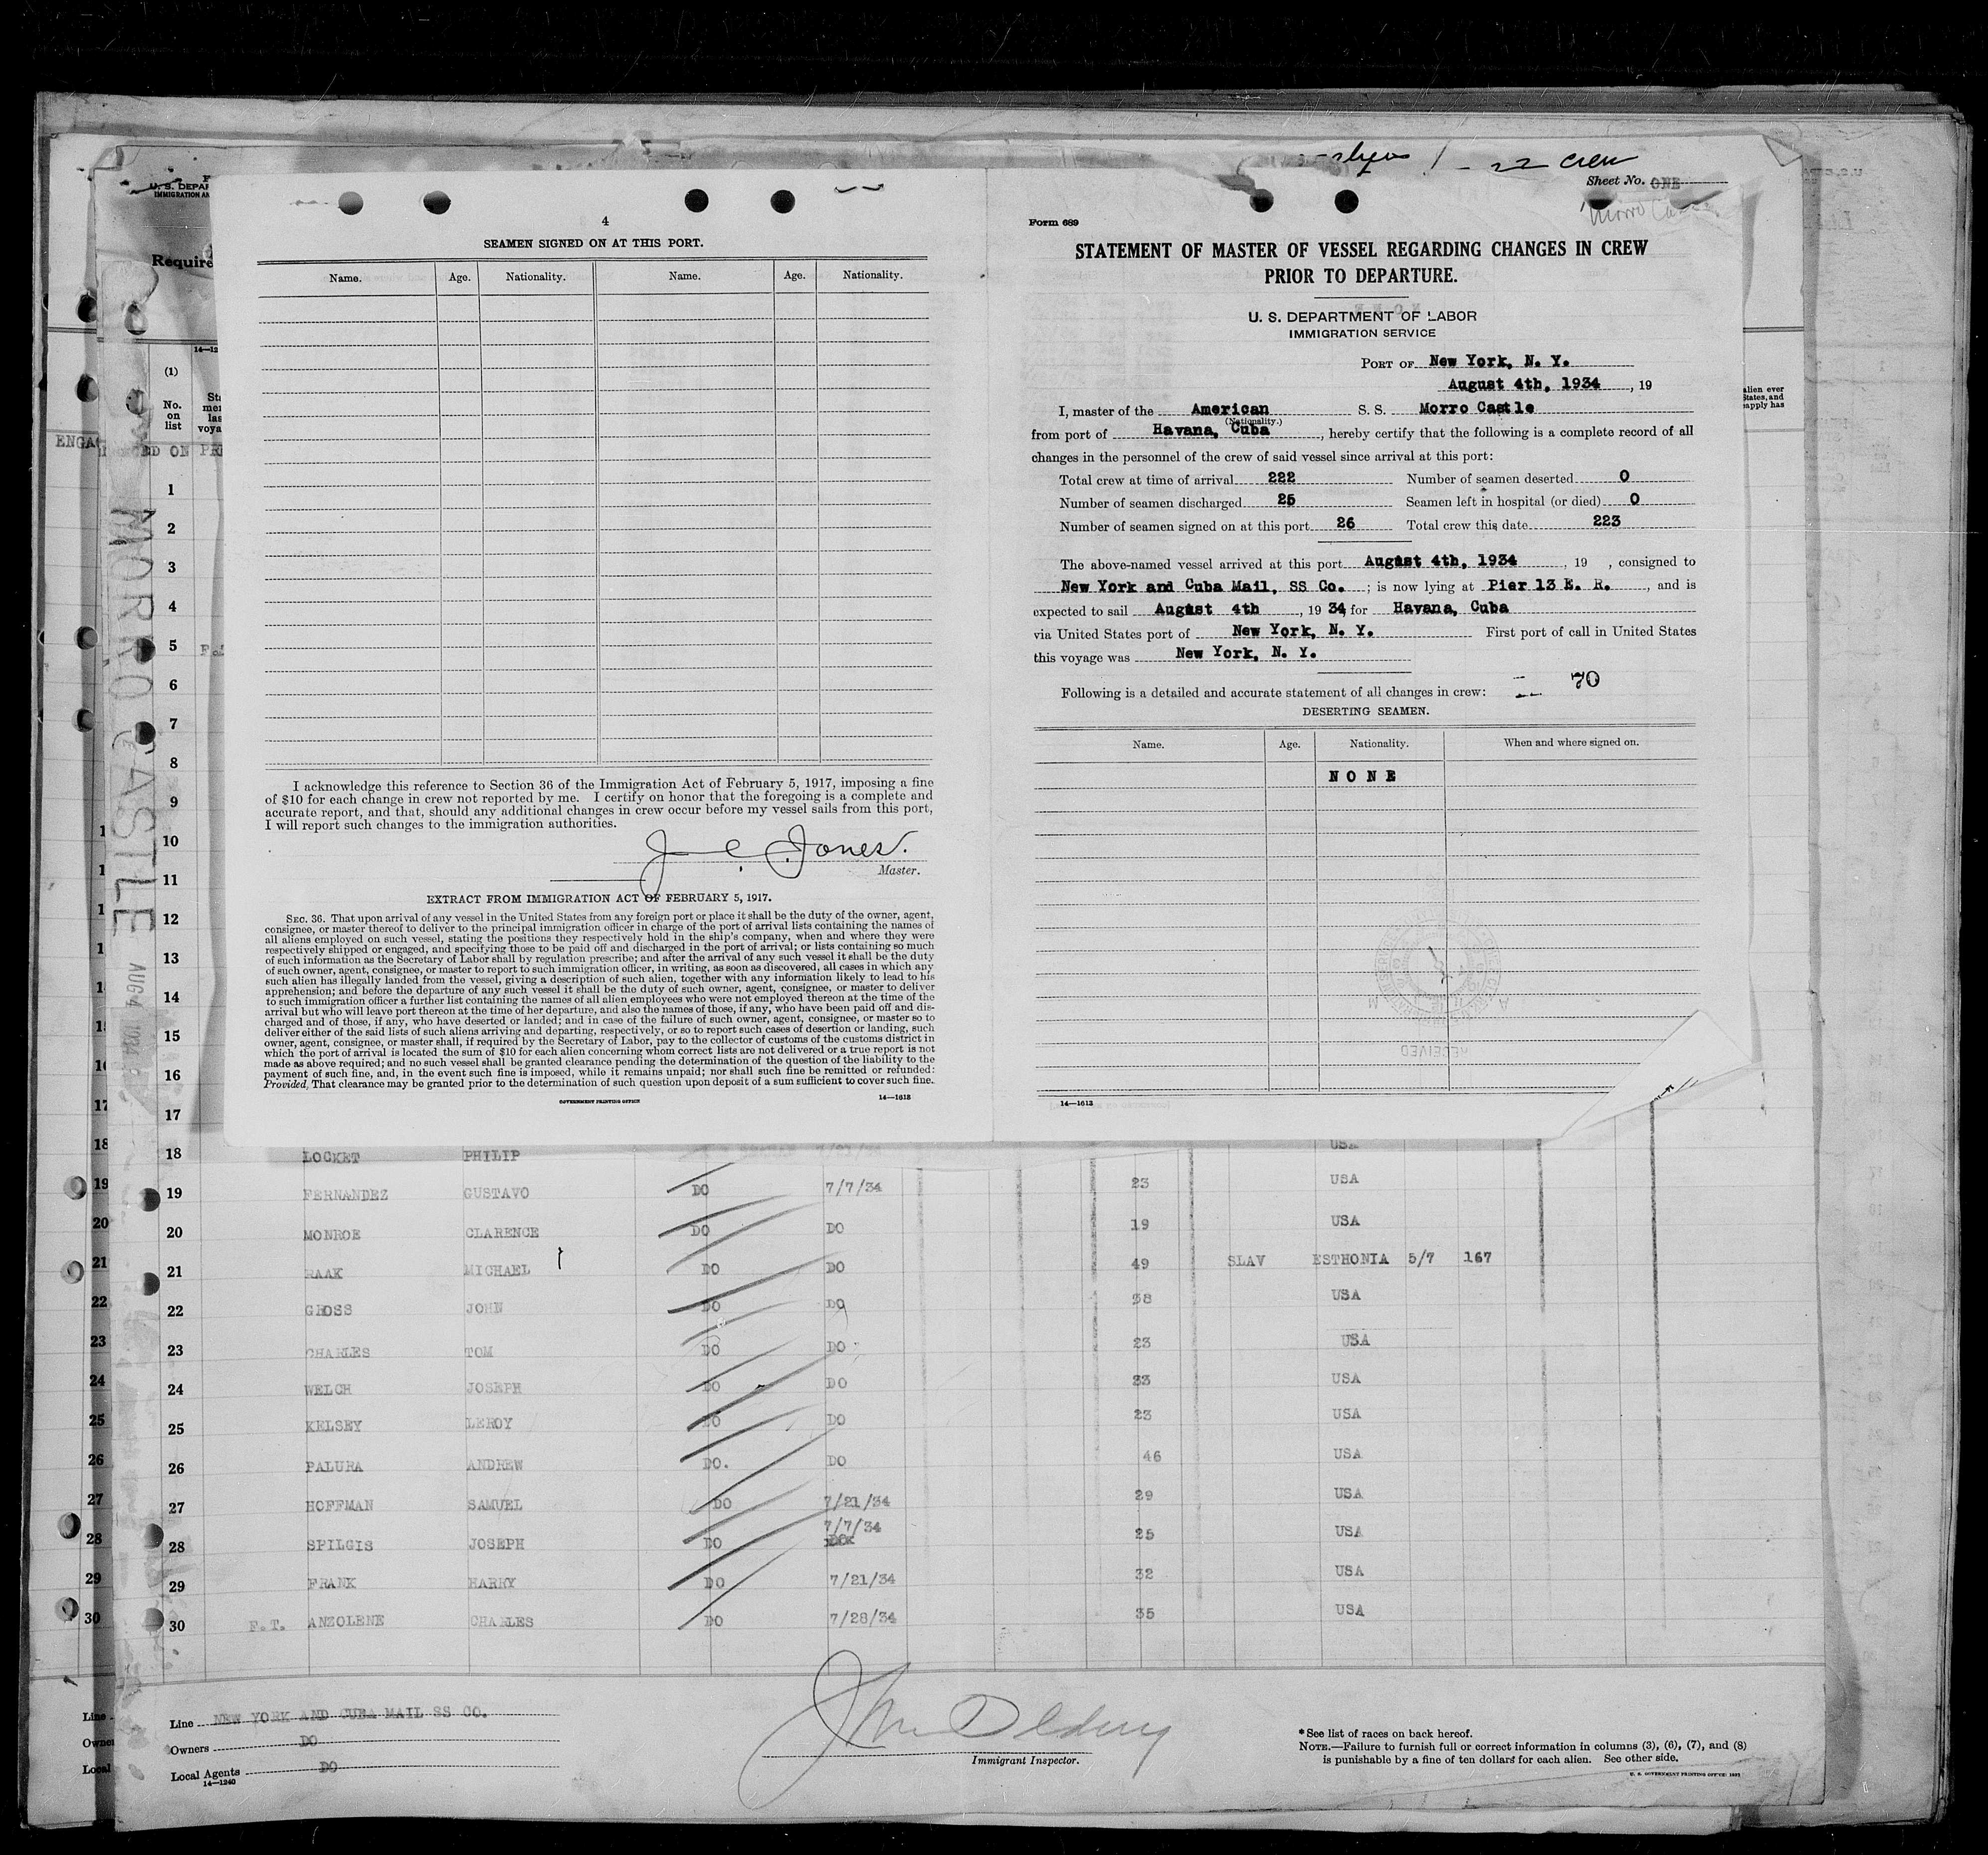 22 crew
Sheet No. ONE
Morro
U. S. DEPAR
IMMIGRATION AN
Require
14—12
(1)
No.
on
list
Sta
men
las
voya
ENGA
ED ON PRE
MORRO CASTLE
AUG 4 1934
4
SEAMEN SIGNED ON AT THIS PORT.
Name. Age. Nationality. Name. Age. Nationality.
I acknowledge this reference to Section 36 of the Immigration Act of February 5, 1917, imposing a fine
of $10 for each change in crew not reported by me. I certify on honor that the foregoing is a complete and
accurate report, and that, should any additional changes in crew occur before my vessel sails from this port,
I will report such changes to the immigration authorities.
J C Jones.
Master.
EXTRACT FROM IMMIGRATION ACT OF FEBRUARY 5, 1917.
SEC. 36. That upon arrival of any vessel in the United States from any foreign port or place it shall be the duty of the owner, agent,
consignee, or master thereof to deliver to the principal immigration officer in charge of the port of arrival lists containing the names of
all aliens employed on such vessel, stating the positions they respectively hold in the ship's company, when and where they were
respectively shipped or engaged, and specifying those to be paid off and discharged in the port of arrival; or lists containing so much
of such information as the Secretary of Labor shall by regulation prescribe; and after the arrival of any such vessel it shall be the duty
of such owner, agent, consignee, or master to report to such immigration officer, in writing, as soon as discovered, all cases in which any
such alien has illegally landed from the vessel, giving a description of such alien, together with any information likely to lead to his
apprehension; and before the departure of any such vessel it shall be the duty of such owner, agent, consignee, or master to deliver
to such immigration officer a further list containing the names of all alien employees who were not employed thereon at the time of the
arrival but who will leave port thereon at the time of her departure, and also the names of those, if any, who have been paid off and dis-
charged and of those, if any, who have deserted or landed; and in case of the failure of such owner, agent, consignee, or master so to
deliver either of the said lists of such aliens arriving and departing, respectively, or so to report such cases of desertion or landing, such
owner, agent, consignee, or master shall, if required by the Secretary of Labor, pay to the collector of customs of the customs district in
which the port of arrival is located the sum of $10 for each alien concerning whom correct lists are not delivered or a true report is not
made as above required; and no such vessel shall be granted clearance pending the determination of the question of the liability to the
payment of such fine, and, in the event such fine is imposed, while it remains unpaid; nor shall such fine be remitted or refunded:
Provided, That clearance may be granted prior to the determination of such question upon deposit of a sum sufficient to cover such fine.
GOVERNMENT PRINTING OFFICE 14—1613
Form 689
STATEMENT OF MASTER OF VESSEL REGARDING CHANGES IN CREW
PRIOR TO DEPARTURE.
U. S. DEPARTMENT OF LABOR
IMMIGRATION SERVICE
PORT OF New York, N. Y.
August 4th, 1934, 19
I, master of the American S. S. Morro Castle
(Nationality.)
from port of Havana, Cuba, hereby certify that the following is a complete record of all
changes in the personnel of the crew of said vessel since arrival at this port:
Total crew at time of arrival 222 Number of seamen deserted 0
Number of seamen discharged 25 Seamen left in hospital (or died) 0
Number of seamen signed on at this port 26 Total crew this date 223
The above-named vessel arrived at this port August 4th, 1934, 19 , consigned to
New York and Cuba Mail, SS Co. ; is now lying at Pier 13 E. R. , and is
expected to sail August 4th , 19 34 for Havana, Cuba
via United States port of New York, N. Y. First port of call in United States
this voyage was New York, N. Y.
70
Following is a detailed and accurate statement of all changes in crew:
DESERTING SEAMEN.
Name. Age. Nationality. When and where signed on.
NONE
RECEIVED
14—1613
alien ever
States, and
apply has
1
2
3
4
5
6
7
8
9
10
11
12
13
14
15
16
17
18 LOCKET PHILIP USA
19 FERNANDEZ GUSTAVO DO 7/7/34 23 USA
20 MONROE CLARENCE DO DO 19 USA
21 RAAK MICHAEL DO DO 49 SLAV ESTHONIA 5/7 167
22 GROSS JOHN DO DO 38 USA
23 CHARLES TOM DO DO 23 USA
24 WELCH JOSEPH DO DO 33 USA
25 KELSEY LEROY DO DO 23 USA
26 PALURA ANDREW DO. DO 46 USA
27 HOFFMAN SAMUEL DO 7/21/34 29 USA
28 SPILGIS JOSEPH DO 7/7/34 25 USA
29 FRANK HARRY DO 7/21/34 32 USA
30 F.T. ANZOLENE CHARLES DO 7/28/34 35 USA
Line NEW YORK AND CUBA MAIL SS CO.
Owners DO
Local Agents DO
14—1240
Immigrant Inspector.
*See list of races on back hereof.
NOTE.—Failure to furnish full or correct information in columns (3), (6), (7), and (8)
is punishable by a fine of ten dollars for each alien. See other side.